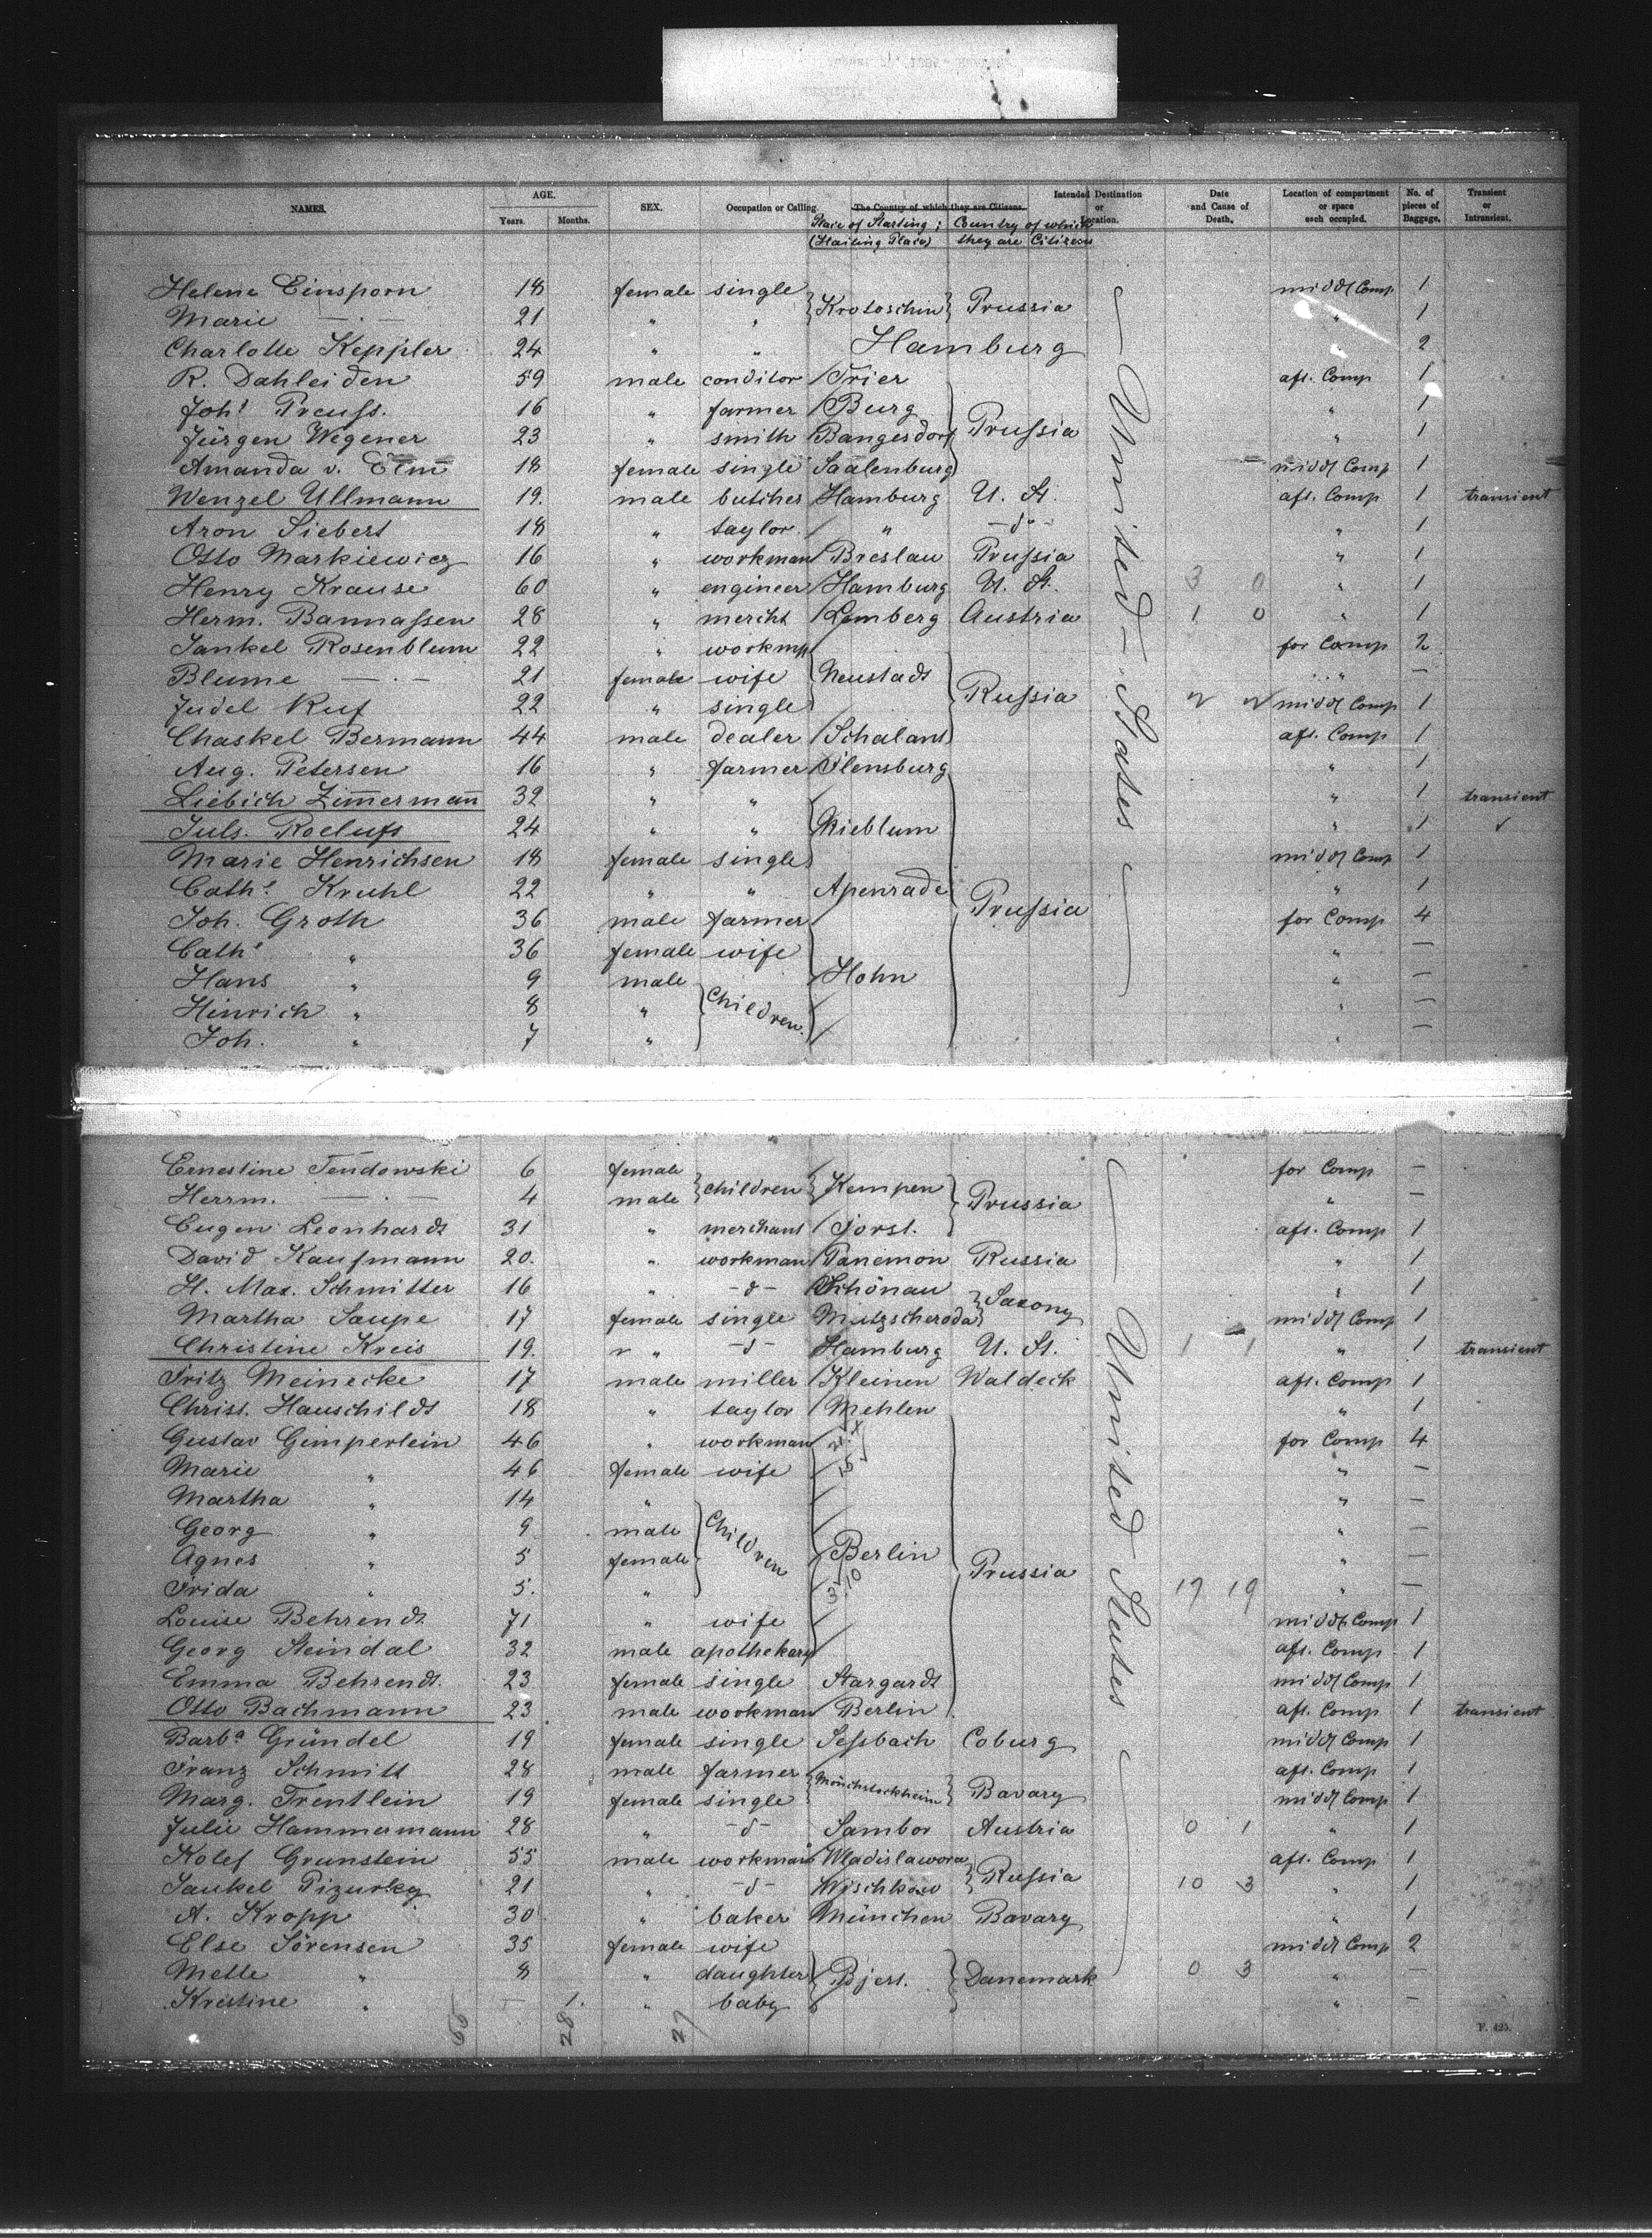 NAMES. AGE. Years. Months. SEX. Occupation or Calling. The Country of which they are Citizens. Intended Destination or Location. Date and Cause of Death. Location of compartment or space each occupied. No. of pieces of Baggage. Transient or Intransient.
Place of Starting; (Hailing Place) Country of which they are Citizens
Helene Einsporn 18 female single Krotoschin Prussia United States middl Comp 1
Marie — 21 " " " 1
Charlotte Keppler 24 " " Hamburg " 2
R. Dahleiden 59 male conditor Trier Prussia aft. Comp 1
Joh! Preuss. 16 " farmer Burg " 1
Jürgen Wegener 23 " smith Bangersdorf " 1
Amanda v. Elm 18 female single Saalenburg middl Comp 1
Wenzel Ullmann 19. male butcher Hamburg U. St. aft. Comp 1 transient
Aron Siebert 18 " taylor " -d°- " 1
Otto Markiewicz 16 " workman Breslau Prussia " 1
Henry Krause 60 " engineer Hamburg U. St. 3 0 " 1
Herm. Bannassen 28 " mercht Lemberg Austria 1 0 " 1
Jankel Rosenblum 22 " workmn Neustadt Russia for Comp 2
Blume — 21 female wife " —
Judel Ruf 22 " single middl Comp 1
Chaskel Bermann 44 male dealer Schalant aft. Comp 1
Aug. Petersen 16 " farmer Flensburg Prussia " 1
Liebich Zimmermann 32 " " " 1 transient
Juls. Roelufs 24 " " Nieblum " 1 ✓
Marie Henrichsen 18 female single middl Comp 1
Cath! Kruhl 22 " " Apenrade " 1
Joh. Groth 36 male farmer Hohn for Comp 4
Cath! " 36 female wife " —
Hans " 9 male Children. " —
Hinrich " 8 " " —
Joh. " 7 " " —
Ernestine Tendowski 6 female children Kempen Prussia United States for Comp —
Herrm. — 4 male " —
Eugen Leonhardt 31 " merchant Forst. aft. Comp 1
David Kaufmann 20. " workman Tanemon Russia " 1
H. Max. Schmitter 16 " -d- Schönau Saxony " 1
Martha Saupe 17 female single Mutzscheroda middl Comp 1
Christine Kreis 19. " -d- Hamburg U. St. 1 1 " 1 transient
Fritz Meinecke 17 male miller Kleinen Waldeck aft. Comp 1
Christ. Hauschildt 18 " taylor Mehlen Prussia " 1
Gustav Gimperlein 46 " workman Berlin for Comp 4
Marie " 46 female wife " —
Martha " 14 " Children " —
Georg " 9 male " —
Agnes " 5 female " —
Frida " 5. " 17 19 " —
Louise Behrendt 71 " wife middl Comp 1
Georg Steindal 32 male apothekary aft. Comp 1
Emma Behrendt. 23 female single Stargardt middl Comp 1
Otto Bachmann 23 male workman Berlin aft. Comp 1 transient
Barb.a Gründel 19 female single Sessbach Coburg middl Comp 1
Franz Schmitt 28 male farmer Mönchstockheim Bavary aft. Comp 1
Marg. Trentlein 19 female single middl Comp 1
Julie Hammermann 28 " -d- Sambor Austria 0 1 " 1
Kolef Grunstein 55 male workman Wladislawowa Russia aft. Comp 1
Jankel Pizurky 21 " -d- Wischkow 10 3 " 1
A. Kropp 30 " baker München Bavary " 1
Else Sörensen 35 female wife Bjert. Danemark middl Comp 2
Mette " 8 " daughter 0 3 " —
Kristine " — 1. " baby " —
28 27
F. 425.